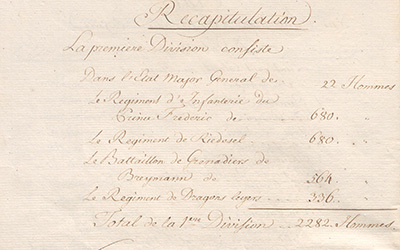 Recapitulation.
La première Division consiste
Dans l'Etat Major General de 22 Hommes
Le Regiment d'Infanterie du
Prince Frederic de 680.
Le Regiment de Riedesel 680.
Le Battaillon de Grenadiers de
Breymann de 564.
Le Regiment de Dragons legers 336.
Total de la 1ere Division 2282 Hommes.